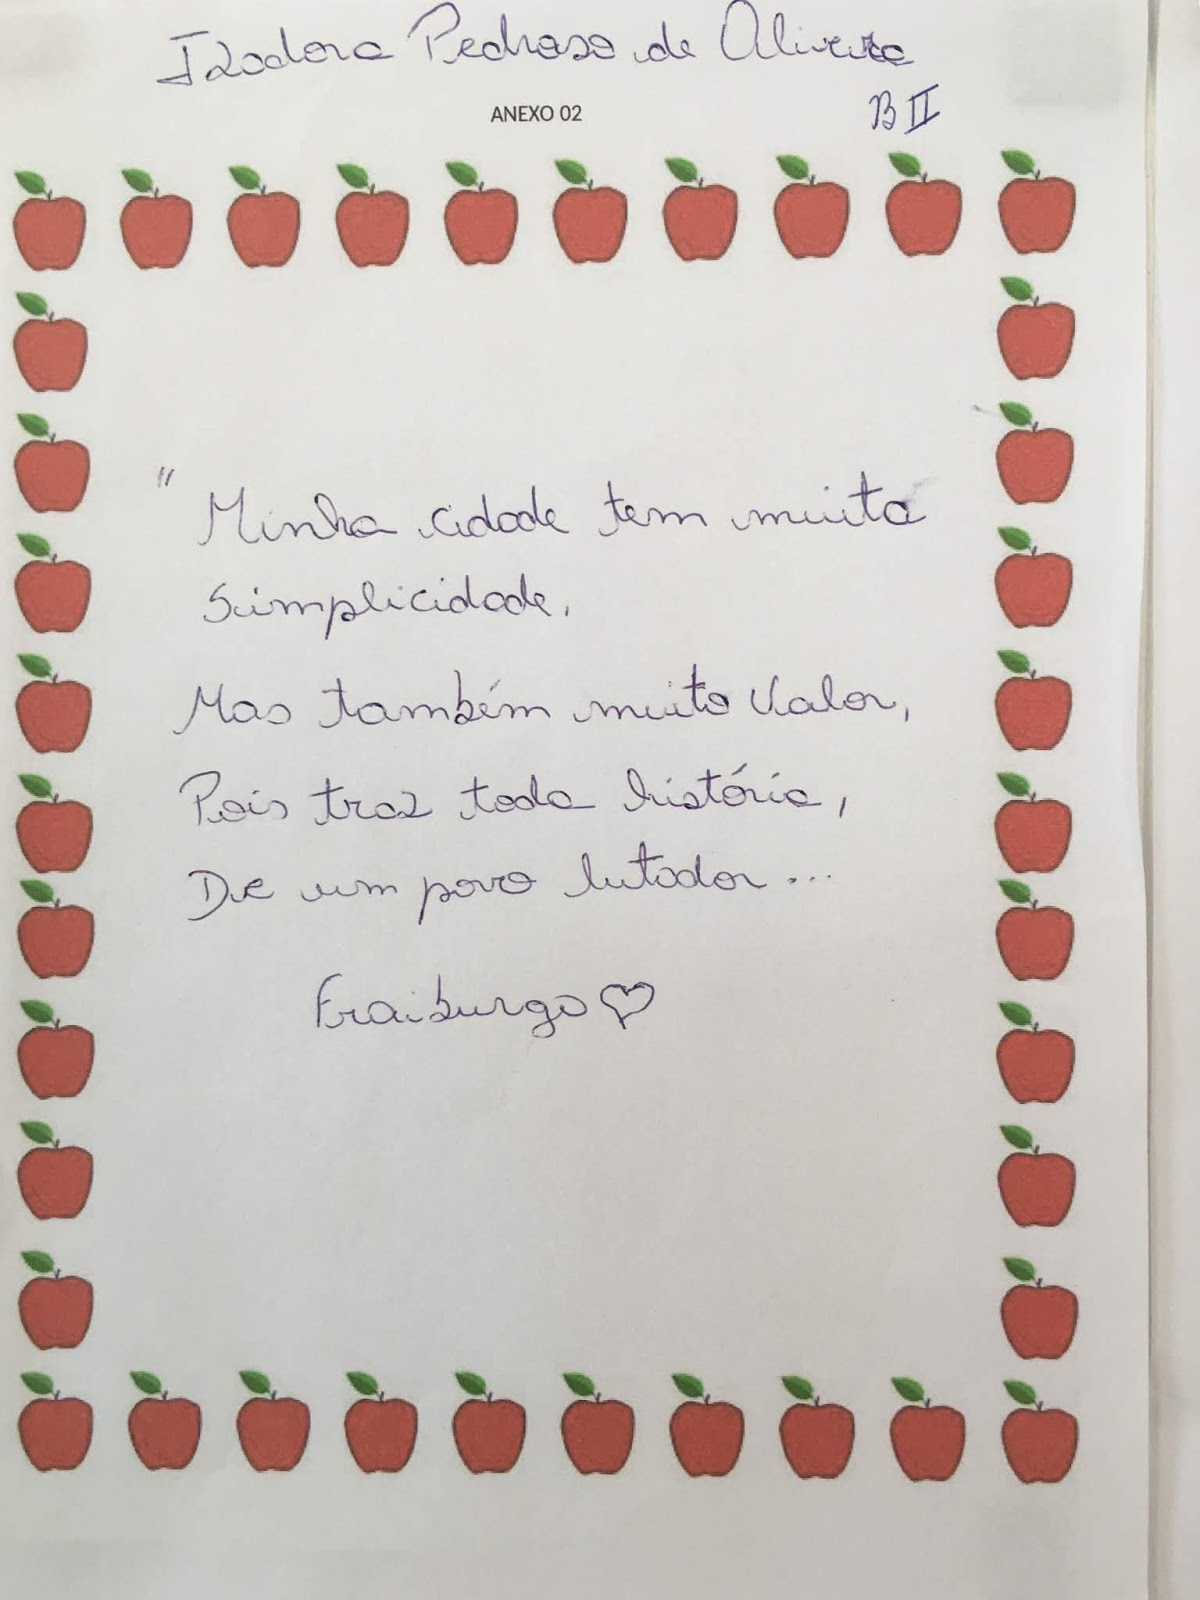 Izadora Pedroso de Oliveira
ANEXO 02
B II
" Minha cidade tem muita
simplicidade,
Mas também muito valor,
Pois traz toda história,
De um povo lutador...
Fraiburgo ♡